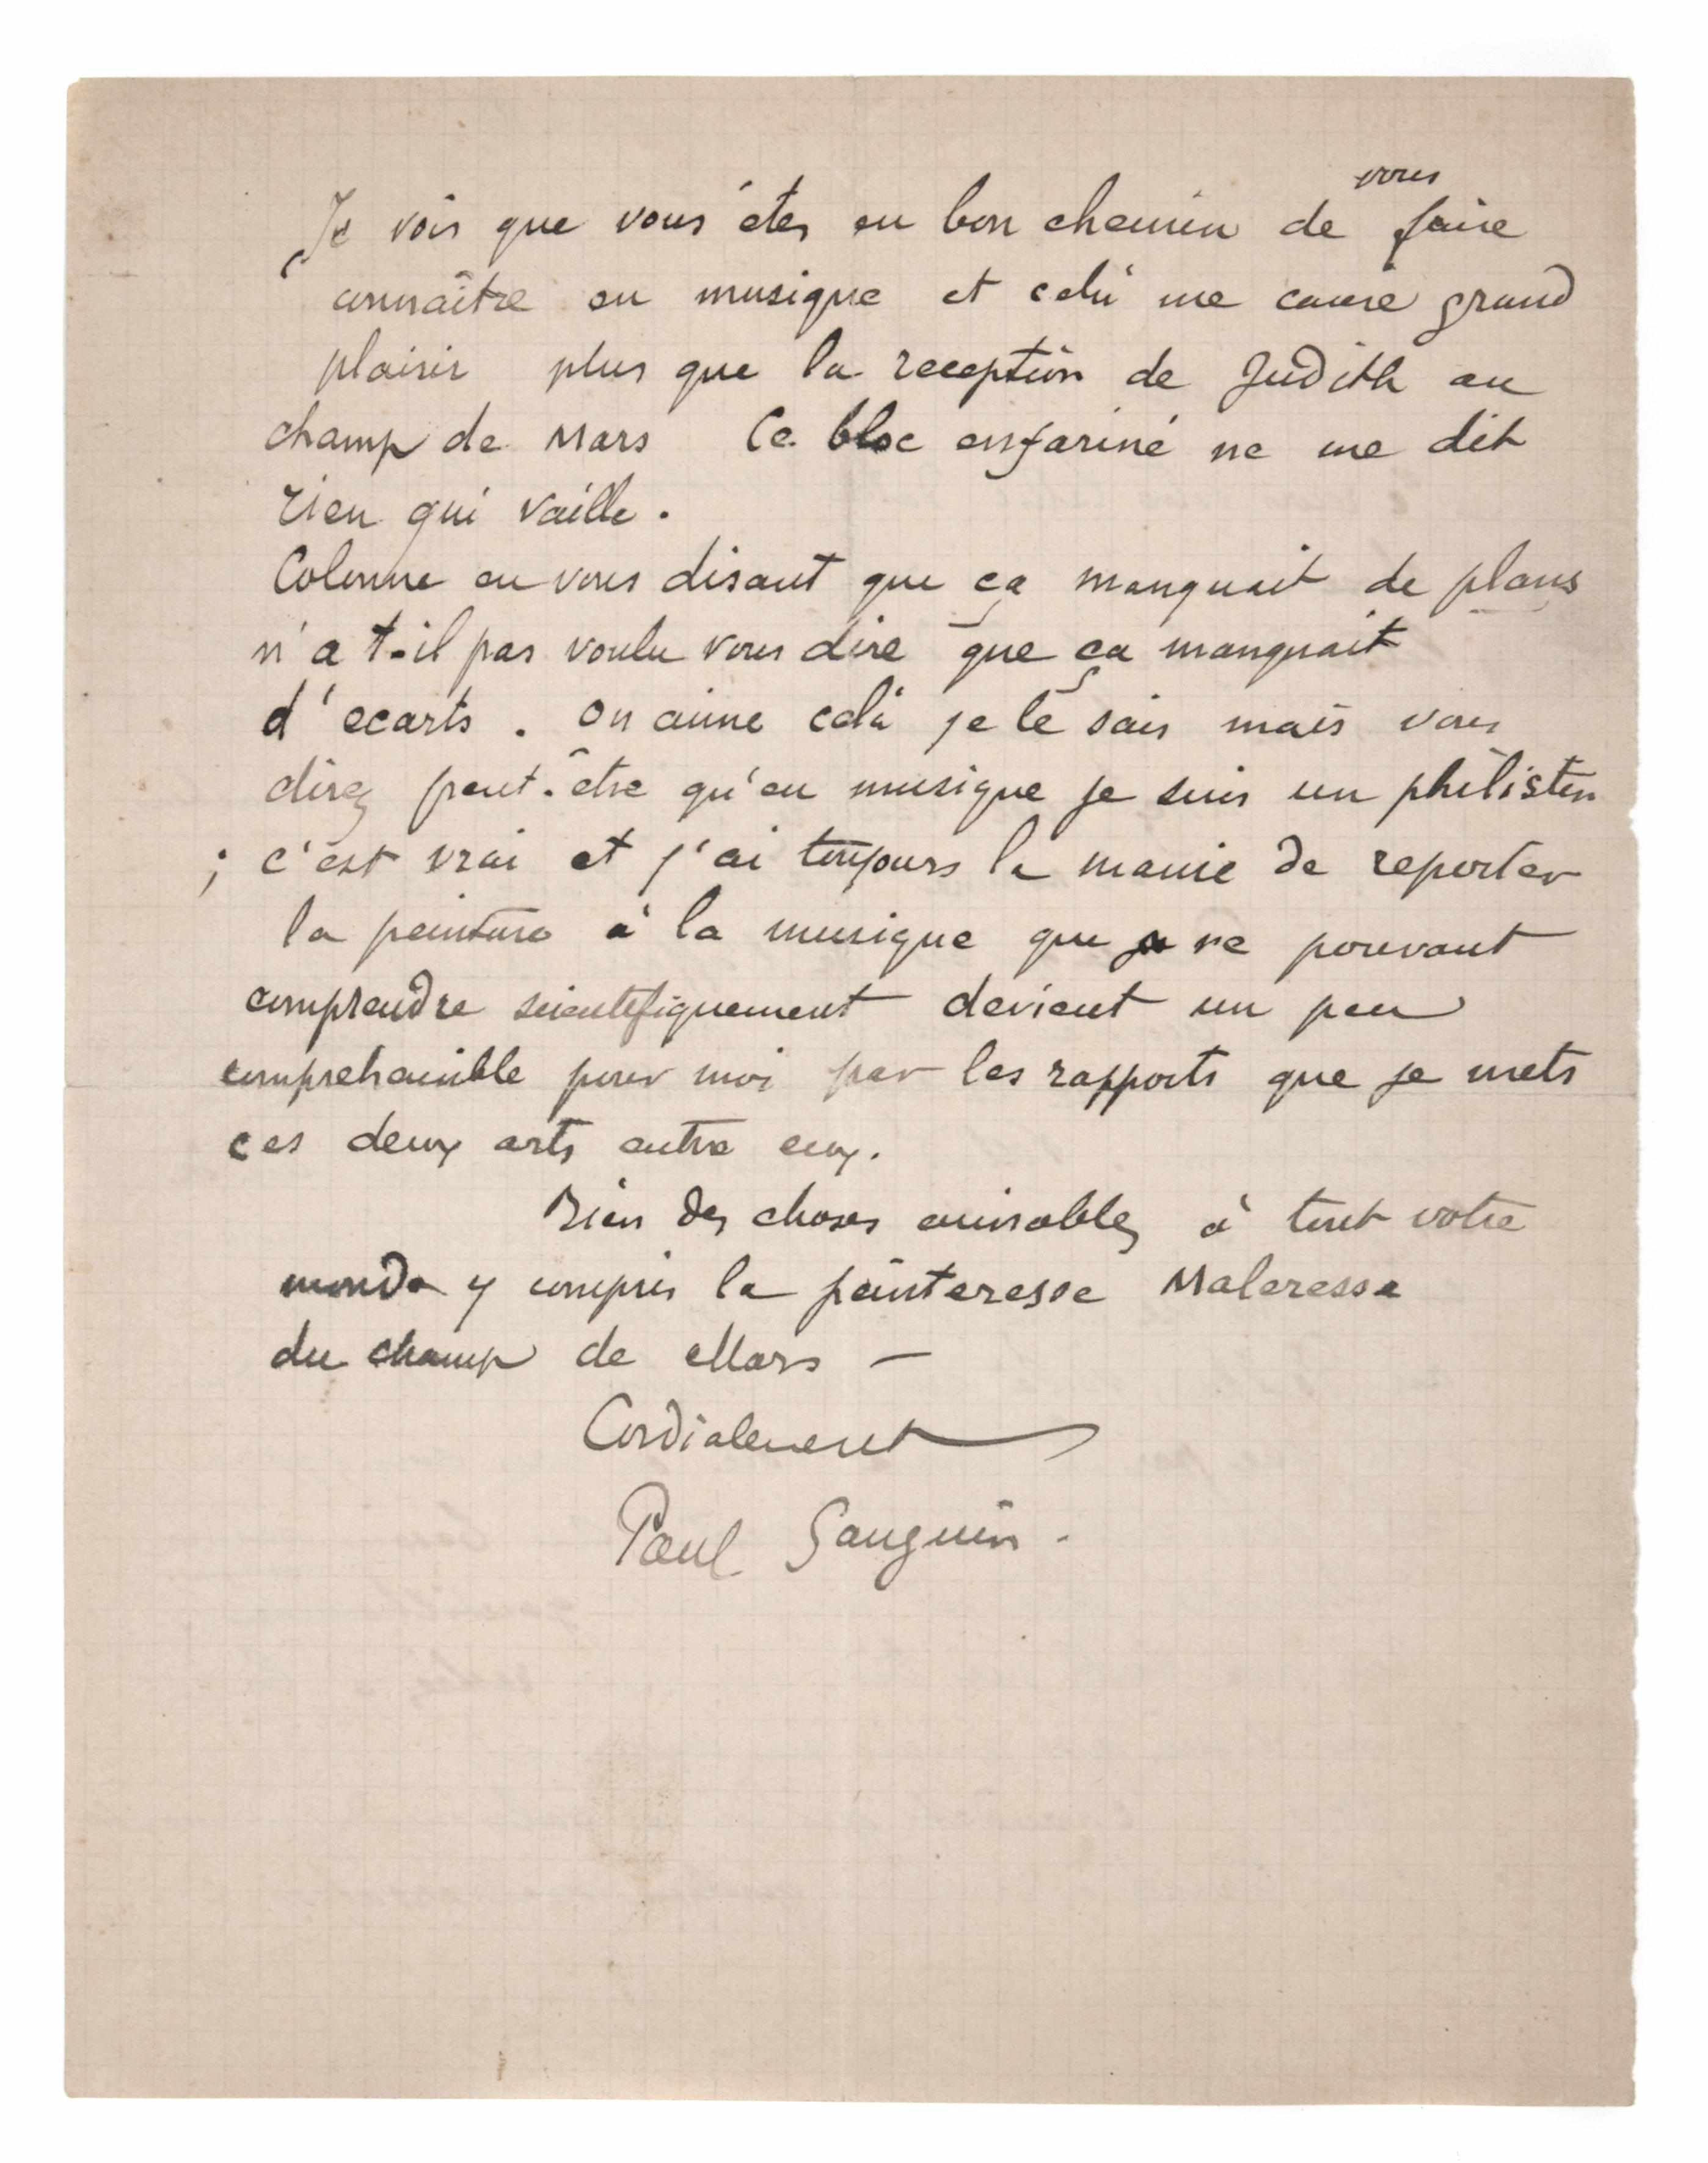 Je vois que vous êtes en bon chemin de vous faire
connaître en musique et celà me cause grand
plaisir plus que la reception de Judith au
champ de Mars Ce bloc enfariné ne me dit
rien qui vaille.
Colonne en vous disant que ça manquait de plans
n'a t-il pas voulu vous dire que ça manquait
d'ecarts. On aime celà je le sais mais vous
direz peut-être qu'en musique je suis un philistin
; c'est vrai et j'ai toujours la manie de reporter
la peinture à la musique que ne pouvant
comprendre scientifiquement devient un peu
comprehensible pour moi par les rapports que je mets
ces deux arts entre eux.
Bien des choses aimables à tout votre
monde y compris la peinteresse Maleresse
du champ de Mars —
Cordialement
Paul Gauguin.